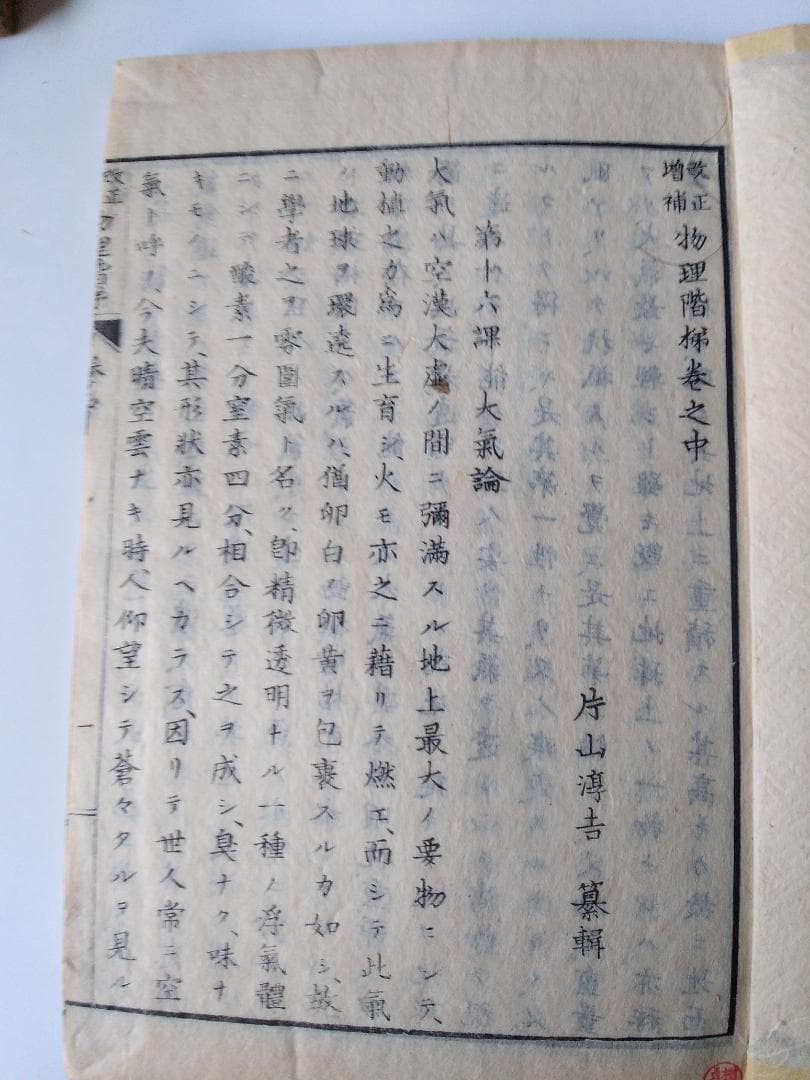 改正増補 物理階梯卷之中
片山淳吉 纂輯
第十六課 大氣論
大氣ハ空漠大虛ノ間ニ彌滿スル地上最大ノ要物ニシテ、
動植之カ爲ニ生育シ、火モ亦之ニ藉リテ燃エ、而シテ此氣
ノ地球ヲ環遶スルハ、猶卵白ノ卵黄ヲ包裹スルカ如シ、故
ニ學者之ヲ雰圍氣ト名ク、卽精微透明ナル一種ノ浮氣體
ニシテ 酸素一分窒素四分、相合シテ之ヲ成シ、臭ナク、味ナ
キモノニシテ、其形狀亦見ルヘカラス、因リテ世人常ニ空
氣ト呼フ今夫晴空雲ナキ時、人仰望シテ蒼々タルヲ見ル
改正 物理階梯 卷之中 一